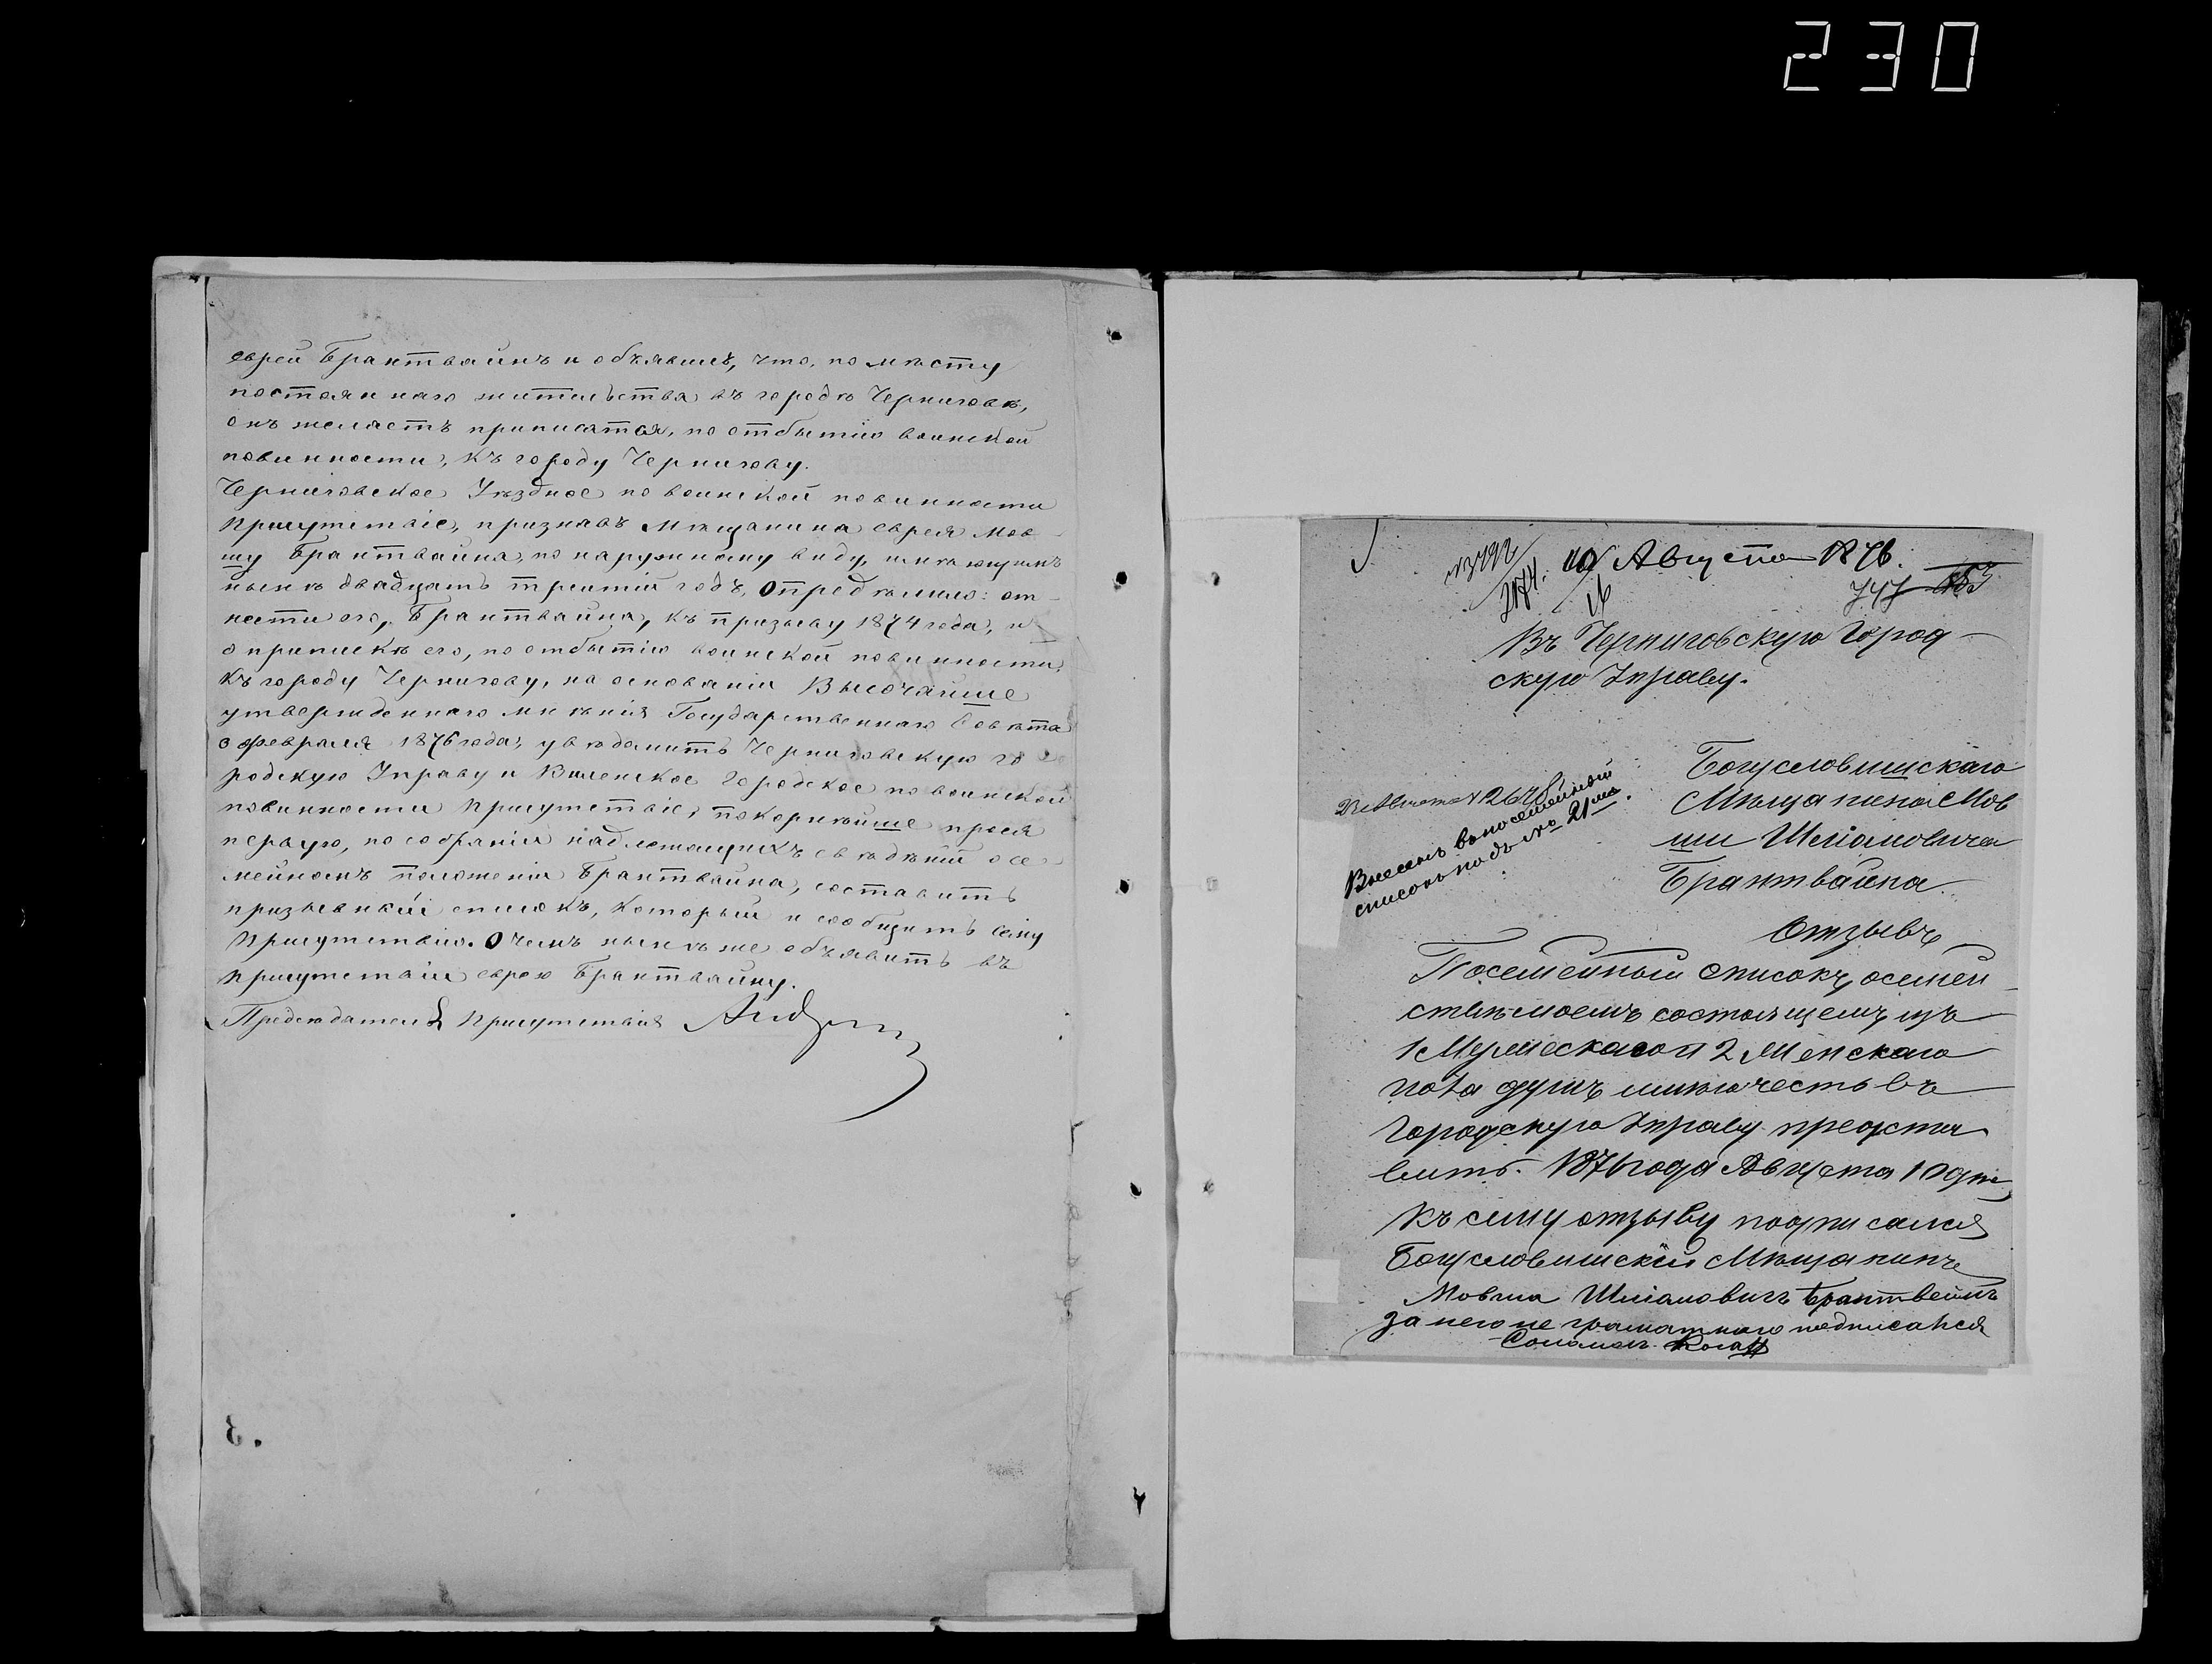 230
еврей Брантвайнъ и объявилъ, что, по мѣсту
постояннаго жительства въ городѣ Черниговѣ,
онъ желаетъ приписаться, по отбытію воинской
повинности, къ городу Чернигову.
Черниговское Уѣздное по воинской повинности
Присутствіе, признавъ мѣщанина еврея Мов
шу Брантвайна, по наружному виду, имѣющимъ
нынѣ двадцать третій годъ, опредѣлило: от
нести его, Брантвайна, къ призыву 1874 года, и
о припискѣ его, по отбытію воинской повинности,
къ городу Чернигову, на основаніи Высочайше
утвержденнаго мнѣнія Государственнаго Совѣта
3 февраля 1876 года, увѣдомить Черниговскую го
родскую Управу и Виленское Городское по воинской
повинности Присутствіе, покорнѣйше прося
первую, по собраніи надлежащихъ свѣдѣній о се-
мейномъ положеніи Брантвайна, составить
призывной списокъ, который и сообщить сему
Присутствію. О чемъ нынѣ же объявить въ
присутствіи еврею Брантвайну.
Предсѣдатель Присутствія
10 Августа 1876.
747
Въ Черниговскую Город-
скую Управу.
Богуслов­ишскаго
Мѣщанина Мов
ши Шліомовича
Брантвайна
Отзывъ
Внесенъ въ посемейный
списокъ подъ № 21мъ.
Посемейный списокъ, о семей
ствѣ моемъ состоящемъ изъ
1 Мужескаго и 2 Женскаго
пола душъ имѣю честь въ
Городскую Управу предста
вить. 1876 года Августа 10 дня
Къ сему отзыву подписался
Богусловишскій Мѣщанинъ
Мовша Шліомовичъ Брантвейнъ
за него не грамотнаго подписался
Соломон Коган